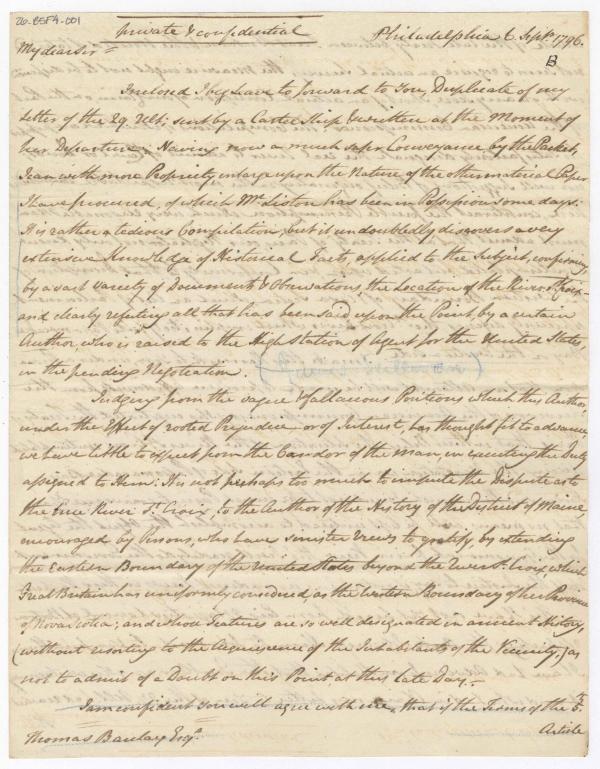 26-BSF4-001
private & confidential
Philadelphia 6 Sept. 1796.
B
My dear Sir =
Inclosed I beg leave to forward to You, Duplicate of my
Letter of the 29. Ult; sent by a Cartel Ship & written at the Moment of
her Departure; Having now a much safer Conveyance by the Packet,
I can with more Propriety, enlarge upon the Nature of the other material Paper
I have procured, of which Mr. Liston has been in Possession some days.
It is rather a tedious Compilation, but it undoubtedly discovers a very
extensive Knowledge of Historical Facts, applied to the Subject, confirming
by a vast variety of Documents & Observations, the Location of the River St. Croix -
and clearly refuting all that has been said upon the Point, by a certain
Author, who is raised to the High Station of Agent for the United States,
in the pending Negotiation.
Judging from the vague & fallacious Positions which this Author,
under the Effect of rooted Prejudice or of Interest, has thought fit to advance,
we have little to expect from the Candor of the Man, in executing the Duty
assigned to Him: It is not perhaps too much to impute the Dispute as to
the true River St. Croix, to the Author of the History of the District of Maine,
encouraged by Persons, who have sinister Views to gratify, by extending
the Eastern Boundary of the United States beyond the River St. Croix, which
Great Britain has uniformly considered as the Western Boundary of her Province
of Nova Scotia; and whose Features are so well designated in ancient History,
(without resorting to the Acquiescence of the Inhabitants of the Vicinity,) as
not to admit of a Doubt on this Point, at this late Day. -
I am confident You will agree with me, that if the Terms of the 5th.
Article
Thomas Barclay Esqr.